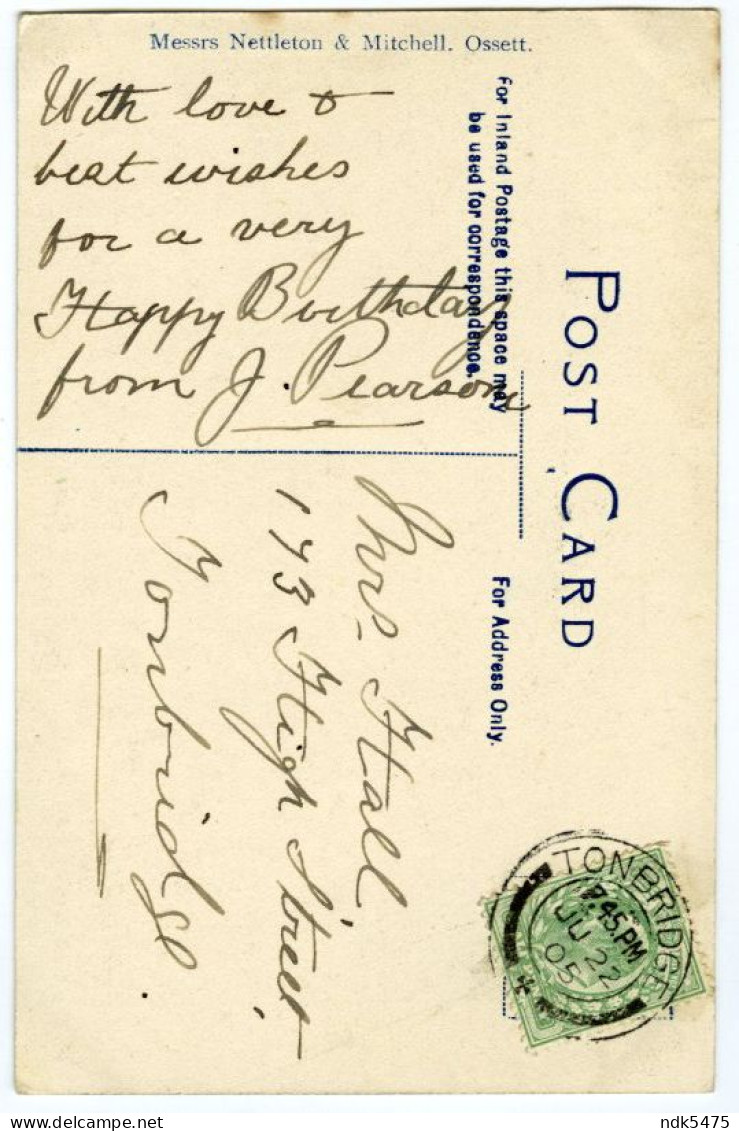 Messrs Nettleton & Mitchell. Ossett.
With love &
best wishes
for a very
Happy Birthday
from J. Pearson
For Inland Postage this space may
be used for correspondence.
POST CARD
For Address Only.
Mrs. Hall
173 High Street
Tonbridge
TONBRIDGE
7.45 PM
JU 22
05
ndk5475